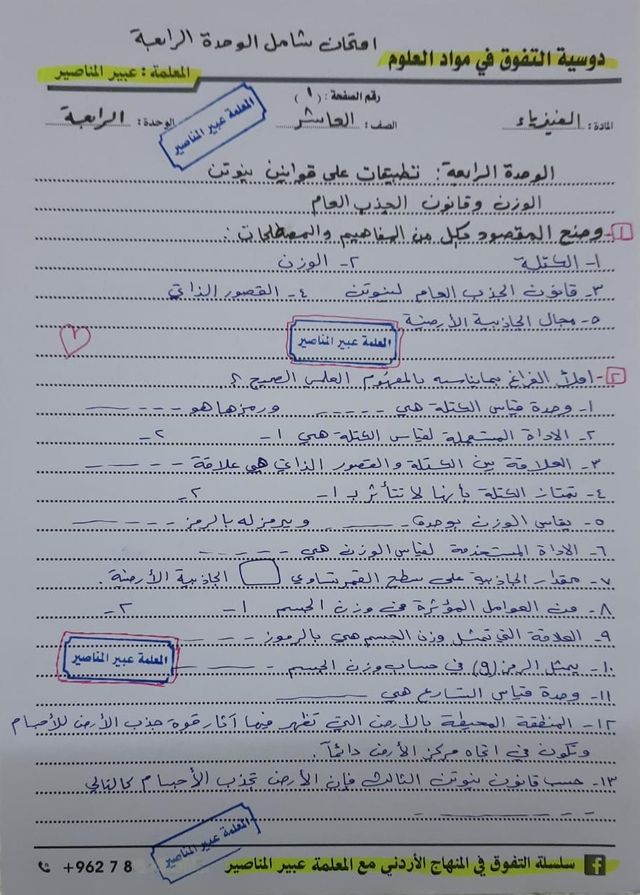 امتحان شامل الوحدة الرابعة
دوسية التفوق في مواد العلوم
المعلمة : عبير المناصير
رقم الصفحة : (١)
المادة : الفيزياء الصف : العاشر الوحدة : الرابعة
المعلمة عبير المناصير
الوحدة الرابعة : تطبيقات على قوانين نيوتن
الوزن وقانون الجذب العام
١- وضح المقصود بكل من المفاهيم والمصطلحات :
١- الكتلة ٢- الوزن
٣- قانون الجذب العام لنيوتن ٤- القصور الذاتي
٥- مجال الجاذبية الأرضية
المعلمة عبير المناصير
٢- املأ الفراغ بما يناسبه بالمفهوم العلمي الصحيح ؟
١- وحدة قياس الكتلة هي ----- ورمزها هو -----
٢- الاداة المستعملة لقياس الكتلة هي ١- ٢-
٣- العلاقة بين الكتلة والقصور الذاتي هي علاقة -----
٤- تمتاز الكتلة بأنها لا تتأثر بـ ١- ٢-
٥- يقاس الوزن بوحدة ----- ويرمز له بالرمز -----
٦- الاداة المستخدمة لقياس الوزن هي -----
٧- مقدار الجاذبية على سطح القمر تساوي الجاذبية الأرضية .
٨- من العوامل المؤثرة في وزن الجسم ١- ٢-
٩- العلاقة التي تمثل وزن الجسم هي بالرموز -----
١٠- يمثل الرمز (g) في حساب وزن الجسم -----
المعلمة عبير المناصير
١١- وحدة قياس التسارع هي -----
١٢- المنطقة المحيطة بالارض التي تظهر فيها آثار قوة جذب الأرض للأجسام
وتكون في اتجاه مركز الأرض دائماً .
١٣- حسب قانون نيوتن الثالث فإن الأرض تجذب الأجسام كالتالي
المعلمة عبير المناصير
سلسلة التفوق في المنهاج الأردني مع المعلمة عبير المناصير
+962 7 8